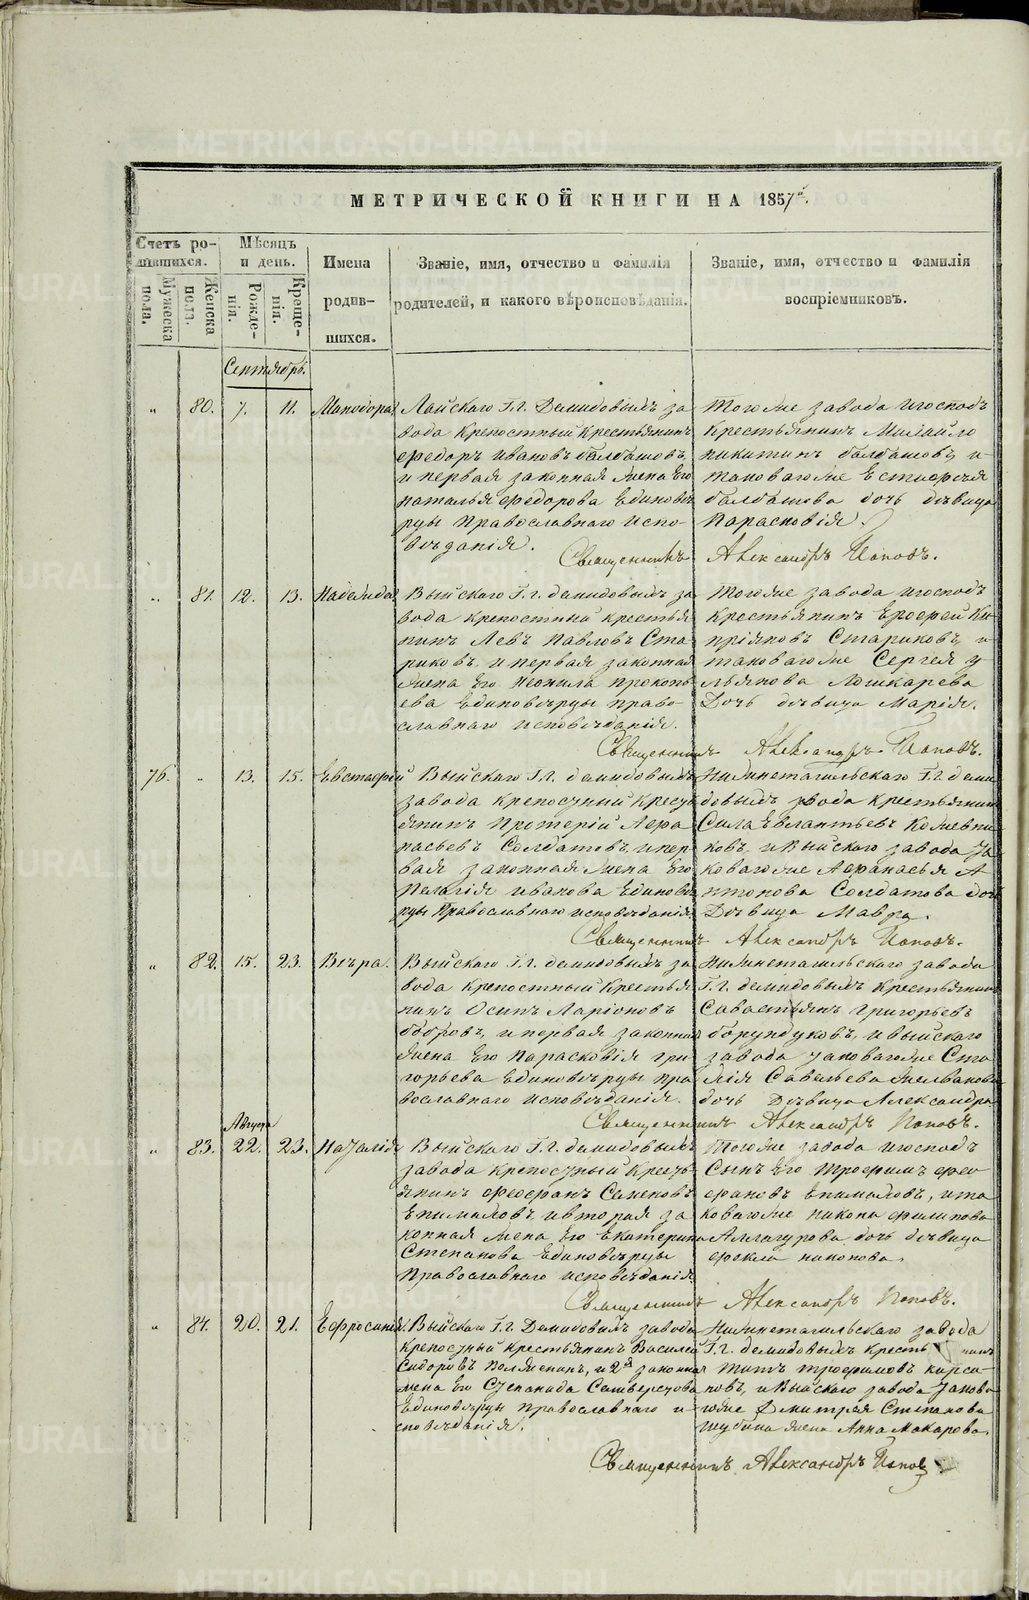 МЕТРИЧЕСКОЙ КНИГИ НА 1857й.
Счетъ ро-
дившихся.
Мужеска
пола.
Женска
пола.
Мѣсяцъ
и день.
Рожде-
нія.
Креще-
нія.
Имена
родив-
шихся.
Званіе, имя, отчество и фамилія
родителей, и какого вѣроисповѣданія.
Званіе, имя, отчество и фамилія
воспріемниковъ.
Сентябрь.
„ 80. 7. 11. Минодора
Лайскаго Г.г. Демидовыхъ за
вода крепостный крестьянинъ
Федоръ Ивановъ Балдашовъ,
и первая законная жена Его
Наталья Федорова Единовѣ
рцы Православнаго испо-
вѣданія.
Тогоже завода Игосподъ
Крестьянинъ Михайло
Никитинъ Балдашовъ, и
таковагоже Естифѣя
Балдашова дочь дѣвица
Парасковія.
Священникъ Александръ Поповъ.
„ 81. 12. 13. Надежда
Выйскаго Г.г. Демидовыхъ за
вода крепостный крестья
нинъ Левъ Павловъ Ста
риковъ, и первая законная
жена Его Неонила Прокопь
ева Единовѣрцы право-
славнаго исповѣданія.
Тогоже завода Игосподъ
Крестьянинъ Ерофей Ки
пріяновъ Стариковъ, и
таковагоже Сергея У
льянова Лошкарева
Дочь дѣвица Марія.
Священникъ Александръ Поповъ.
76. „ 13. 15. Евстафій
Выйскаго Г.г. Демидовыхъ
завода крепостный кресть
янинъ Протерій Афа
насьевъ Солдатовъ, и пер
вая законная жена Его
Пелагія Иванова Единовѣ
рцы Православнаго исповѣданія.
Нижнетагильскаго Г.г. Деми
довыхъ звода крестьянинъ
Сила Евлантьевъ Кожевни
ковъ, и Выйскаго завода та
коваго же Афанасья А
нтонова Солдатова дочь
Дѣвица Мавра.
Священникъ Александръ Поповъ.
„ 82. 15. 23. Вѣра.
Выйскаго Г.г. Демидовыхъ за
вода крепостный Крестья
нинъ Осипъ Ларіоновъ
Бобровъ, и первая законная
жена Его Парасковія Гри
горьева Единовѣрцы пра
вославнаго исповѣданія.
Нижнетагильскаго завода
Г.г. Демидовыхъ Крестьянинъ
Савастьянъ Григорьевъ
Борундуковъ, и Выйскаго
завода таковагоже
Савельева
дочь Дѣвица Александра.
Священникъ Александръ Поповъ.
Августа
„ 83. 22. 23. Наталія
Выйскаго Г.г. Демидовыхъ
завода крепостный кресть
янинъ Феофанъ Семеновъ
Епимаховъ, и вторая за
конная жена Его Екатерина
Степанова Единовѣрцы
Православнаго исповѣданія
Тогоже завода Игосподъ
Сынъ Его Трофимъ Фео
фановъ Епимаховъ, и та
коваго же Никона Филипова
дочь дѣвица
Фекла Никонова.
Священникъ Александръ Поповъ.
„ 84. 20. 21. Ефросинія.
Выйскаго Г.г. Демидовыхъ завода
Крепостный крестьянинъ Василей
Сидоровъ Волженинъ, и 2я законная
жена Его Степанида Селиверстова
Единовѣрцы православнаго и
сповѣданія.
Нижнетагильскаго завода
Г.г. Демидовыхъ кресть нинъ
Титъ Трофимовъ Кирса-
новъ, и Выйскаго завода таково
гоже Дмитрея Степанова
Шубина жена Анна Макарова.
Священникъ Александръ Попов